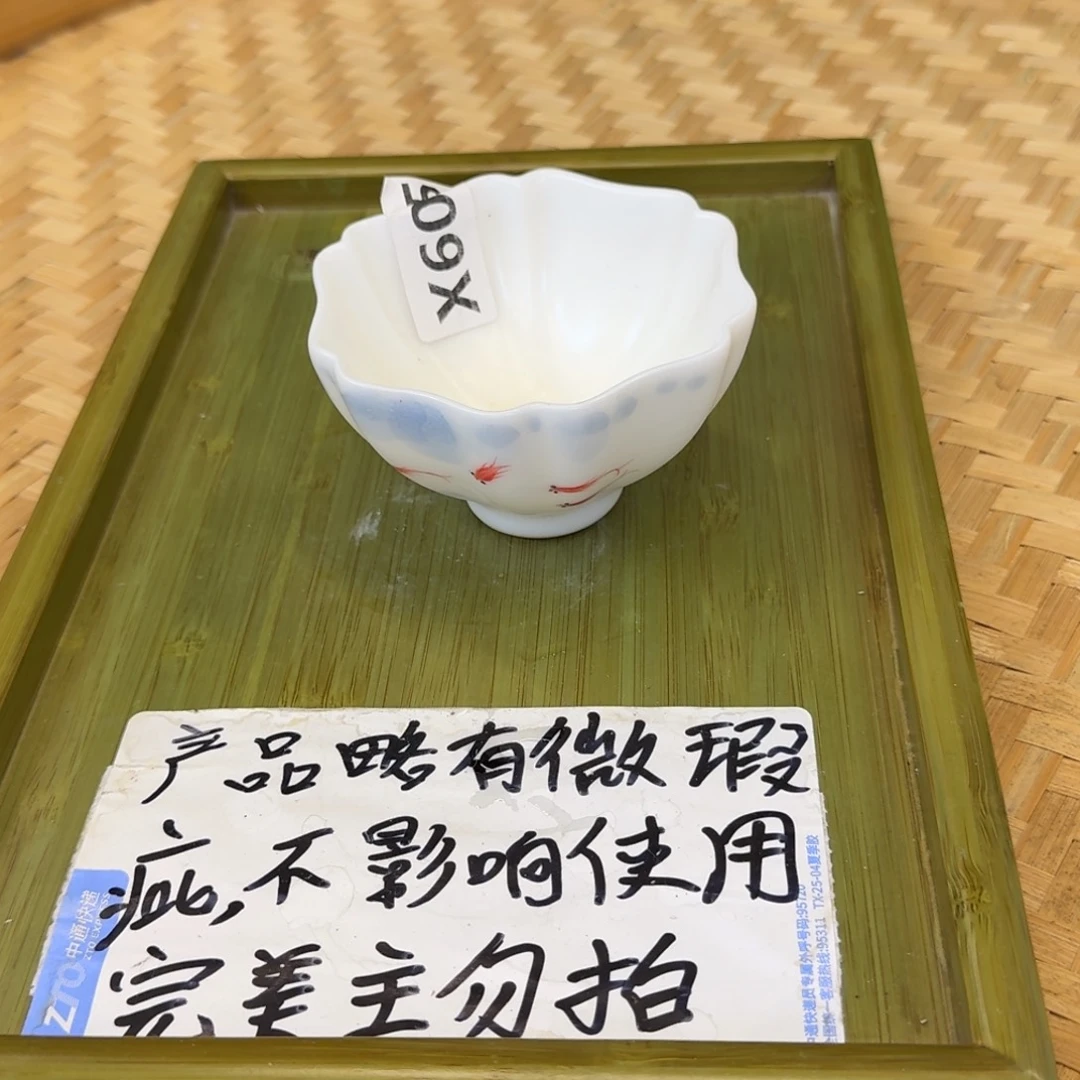 X60
产品略有微瑕
疵,不影响使用
完美主勿拍
ZTO
中通快递
ZTO EXPRESS
中通快递员专属外呼号码:95720
客服热线:95311 TX-25-04夏季胶